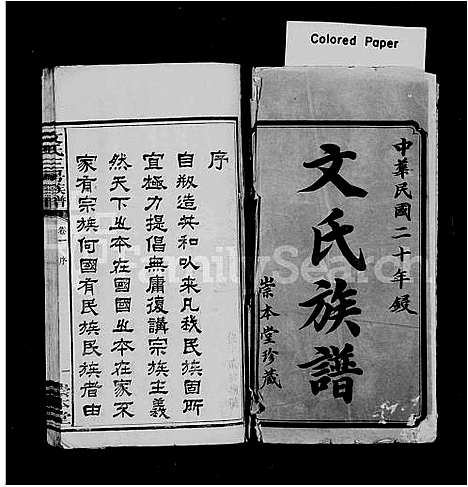 Colored Paper
中華民國二十年鋟
文氏族譜
崇本堂珍藏
序
自刱造共和以來凡我民族箇所
宜極力提倡無庸復講宗族主義
然天下之本在國國之本在家不
家有宗族何國有民族民族者由
文氏三房族譜
卷一
序
FamilySearch